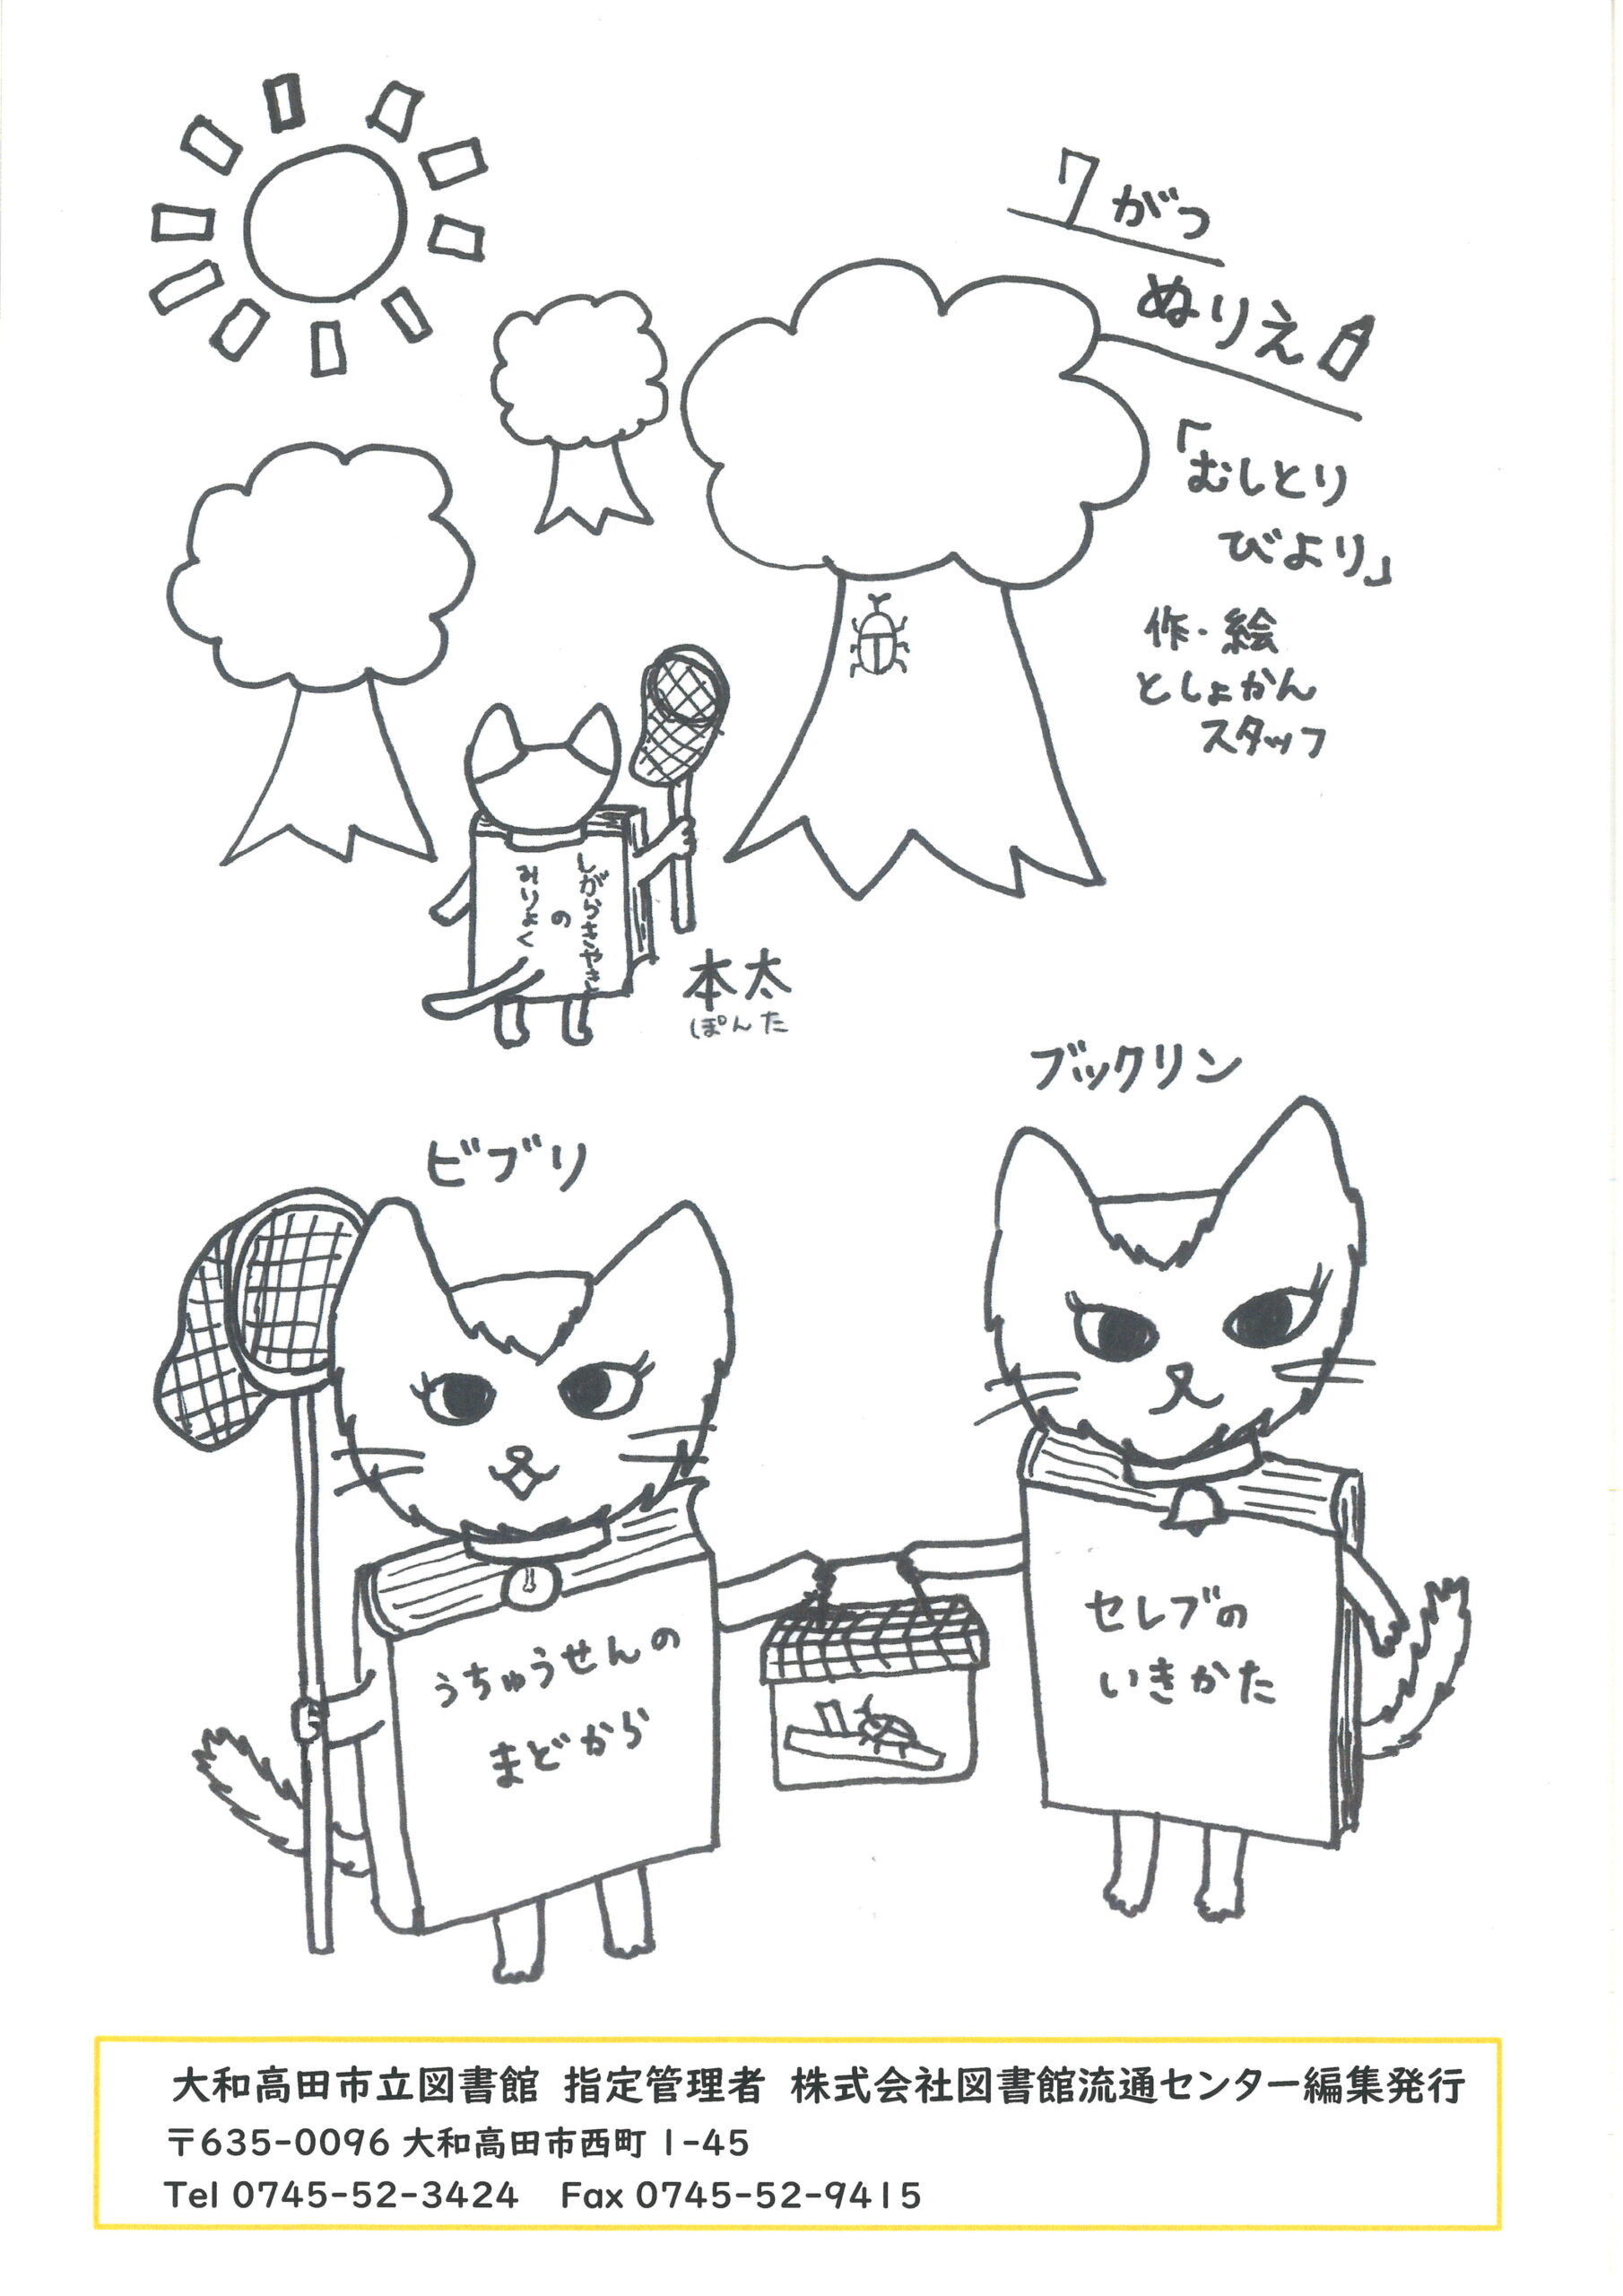 7がつ
ぬりえ
「むしとり
びより」
作・絵
としょかん
スタッフ
しがらきやきと
の
みりょく
本太
ぽんた
ブックリン
ビブリ
うちゅうせんの
まどから
セレブの
いきかた
大和高田市立図書館 指定管理者 株式会社図書館流通センター編集発行
〒635-0096 大和高田市西町 1-45
Tel 0745-52-3424 Fax 0745-52-9415